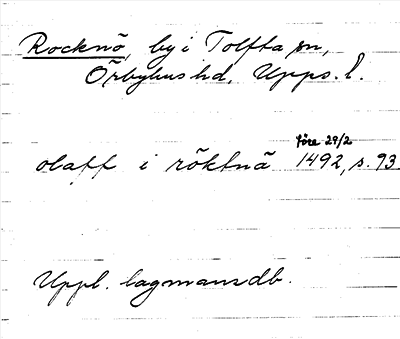 Rocknö, by i Tolfta sn,
Örbyhus hd, Upps. l.
före 29/2
olaff i röktnä 1492, s. 93
Uppl. lagmansdb.